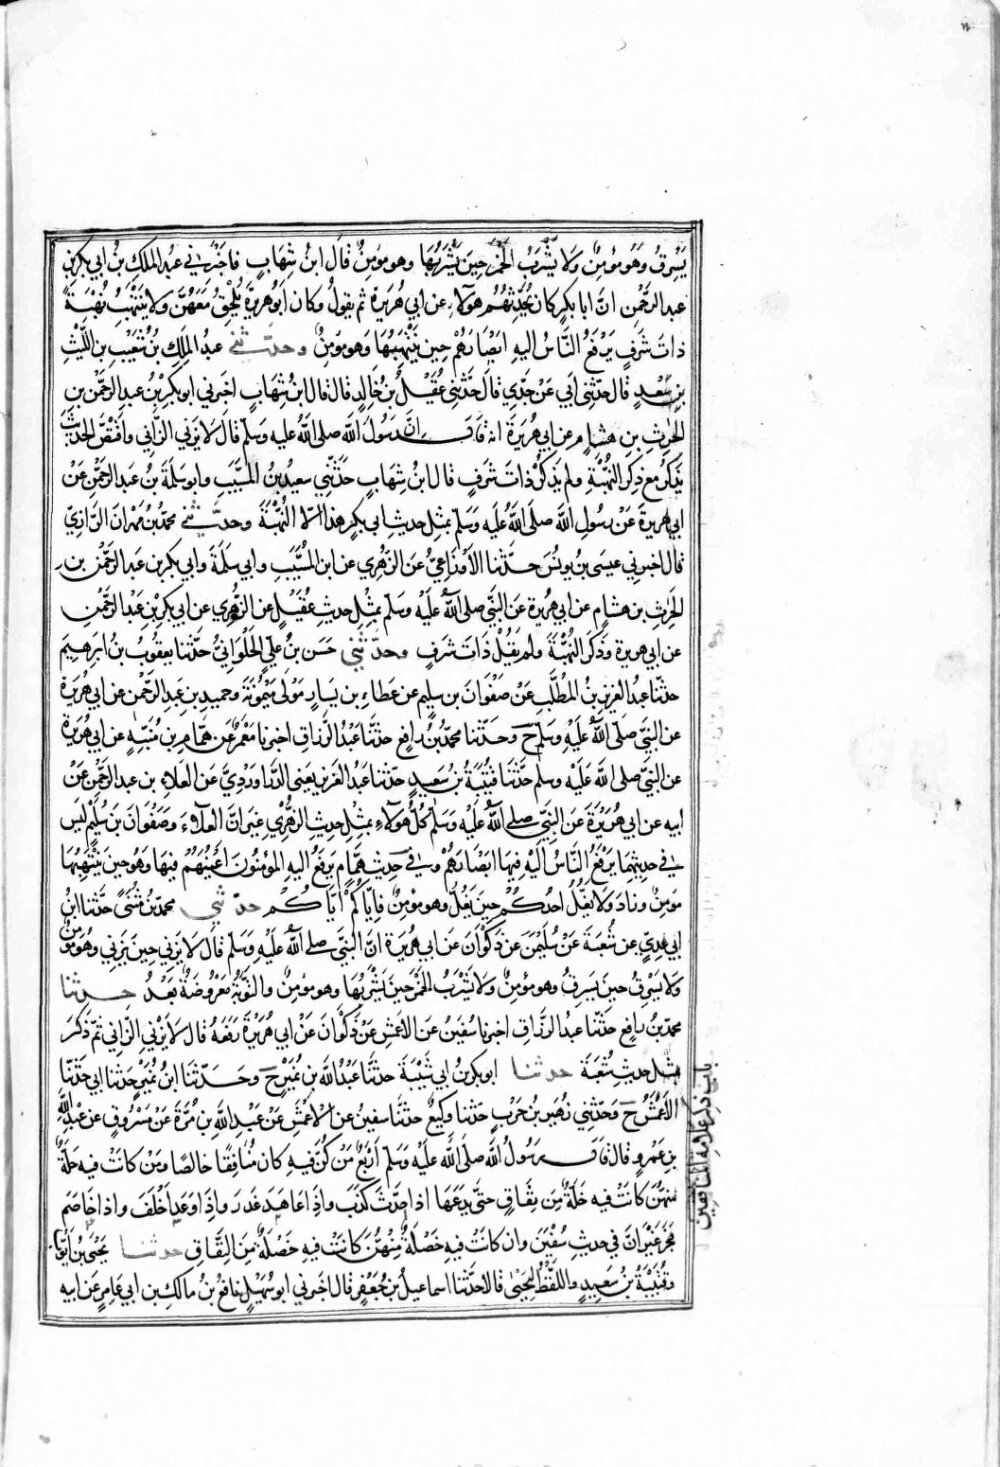 يَسْرِقُ وَهُوَ مُؤمِنٌ وَلا يَشْرَبُ الخَمْرَ حِينَ يَشْرَبُهَا وهو مؤمنٌ قالَ ابنُ شِهَابٍ فاخبرني عبدُ الملكِ بنُ ابي بكرِ بنِ
عبد الرحمن انَّ ابا بكرٍ كان يُحَدِّثُهُم هولاء عن ابي هُرَيرَة ثم يقولُ وكان ابو هريرة يُلْحِقُ مَعَهُنَّ ولا يَنْتَهِبُ نُهْبَةً
ذاتَ شرفٍ يَرْفَعُ النَّاسُ اليه ابْصَارَهُمْ حين يَنْتَهِبُهَا وهو مؤمنٌ وحدّثني عبدُ الملكِ بنُ شُعَيْبِ بنِ اللَّيْثِ
بنِ سَعْدٍ قال حدّثني ابي عَنْ جَدِّي قالَ حَدّثني عُقَيْلُ بنُ خَالِدٍ قال قال ابنُ شِهَابٍ اخبرني ابو بكرِ بْنُ عبد الرحمٰن بن
الحٰرثِ بنِ هشامٍ عن ابي هُرَيرَة انه قال انَّ رَسُولَ الله صلى اللهُ عليه وسلم قال لا يزني الزَّاني واقْتَصَّ الحديثَ
يَذكرُ مع ذِكرِ النُّهْبَةِ ولم يَذكُرْ ذاتَ شَرَفٍ قال ابنُ شِهَابٍ حَدَّثني سعيدُ بنُ المسَيَّبِ وابو سَلَمَةَ بنُ عبد الرحمٰنِ عَنْ
ابي هريرةَ عَنْ رسولِ اللهِ صلى اللهُ عليه وسلم بمثلِ حديثِ ابي بكرٍ هذا الّا النُّهْبَةَ وحدّثني محمّدُ بنُ مِهْرَانَ الرَّازيُّ
قال اخبرني عيسى بنُ يونُسَ حدَّثنا الأَوْزَاعِيُّ عن الزُّهريِّ عن ابن المُسَيَّبِ وابي سلَمَةَ وابي بكرِ بنِ عبد الرحمٰن بنِ
الحٰرثِ بن هشامٍ عن ابي هريرة عن النبي صلى الله عليه وسلم بمثلِ حديثِ عُقَيْلٍ عن الزُّهريِّ عن ابي بكرِ بنِ عَبْدِ الرَّحمٰن
عن ابي هريرة وذَكَرَ النُّهْبَةَ ولم يَقُلْ ذَاتَ شَرَفٍ وحدّثني حَسَنُ بنُ عليٍّ الحُلْوَانيُّ حدّثنا يعقوبُ بنُ ابرهيمَ
حدّثنا عبدُ العزيزِ بنُ المُطَّلِبِ عَنْ صَفْوَانَ بن سُلَيمٍ عن عَطَاءِ بن يَسَارٍ مَوْلَى مَيْمُونَةَ وحميدِ بنِ عَبدِ الرَّحمٰنِ عن ابي هُرَيرَة
عن النبيّ صلى الله عليهِ وسلم ح وحدّثنا محمدُ بنُ رافعٍ حدّثنا عَبْدُ الرَّزاقِ اخبرنا معمَرٌ عَن هَمَّامِ بن مُنَبِّهٍ عن ابي هُرَيرَة
عن النبيّ صلى اللهُ عَلَيْهِ وسلم حدّثنا قُتَيْبَةُ بنُ سعيدٍ حدّثنا عبدُ العزيز يعني الدَّراوَرْدِيَّ عَنِ العَلاءِ بنِ عبد الرحمٰنِ عَنْ
ابيه عن ابي هُرَيْرَةَ عَنِ النبيّ صلى اللهُ عليه وسلم كُلُّ هؤلاءِ بمثلِ حديثِ الزُّهْريِّ غَيرَ انَّ العَلاءَ وصَفْوَانَ بنَ سُلَيْمٍ ليسَ
في حديثِهِما يَرْفَعُ النَّاسُ اليْهِ فيها ابْصَارَهُمْ وفي حديثِ هَمَّامٍ يَرفعُ اليه المؤمنُونَ اعْيُنَهُمْ فيها وهو حينَ يَنْتَهِبُهَا
مؤمنٌ وزادَ ولا يَغُلُّ احدُكُمْ حِينَ يَغُلُّ وهو مؤمنٌ فايّاكُمْ ايّاكُمْ حدّثني محمدُ بنُ مُثَنًّى حدّثنا ابنُ
ابي عَدِيٍّ عن شُعْبَةَ عَنْ سُلَيْمٰنَ عَنْ ذَكْوَانَ عَن ابي هريرة انَّ النبيّ صلى الله عليهِ وسلم قالَ لا يزني حينَ يَزني وهو مؤمنٌ
ولا يَسْرِقُ حينَ يَسرقُ وهو مُؤمِنٌ ولا يَشْرَبُ الخَمْرَ حينَ يَشْرَبُهَا وهو مؤمنٌ والتَّوْبَةُ مَعْرُوضَةٌ بَعْدُ حدّثنا
محمّدُ بنُ رافعٍ حدّثنا عبدُ الرَّزاقِ اخبرنا سفينُ عَنِ الاعمشِ عَنْ ذَكْوَانَ عَنْ ابي هُرَيْرَةَ رَفَعَهُ قال لا يَزْني الزَّاني ثمّ ذَكَرَ
مثلَ حديثِ شُعْبَةَ حدثنا ابو بكرِ بنُ ابي شَيْبَةَ حدّثنا عَبْدُ اللهِ بنُ نُمَيْرٍ ح وحَدّثنَا ابنُ نُمَيرٍ حدّثنا ابي حدّثنا
الأَعْمَشُ ح وحدّثني زُهَيرُ بنُ حَرْبٍ حدّثنا وكيعٌ حدّثنا سفينُ عن الاعْمَشِ عَنْ عَبدِ اللهِ بن مُرَّةَ عَنْ مَسْرُوقٍ عن عَبْدِ اللهِ
بن عَمْرٍو قال قال رسُولُ اللهِ صلَى اللهُ عليه وسلم أرْبَعٌ مَنْ كُنَّ فِيهِ كان مُنَافِقًا خالصًا ومَنْ كانَتْ فيه خَلَّةٌ
منهنّ كانَتْ فيه خَلَّةٌ مِنْ نِفَاقٍ حتّى يَدَعَهَا اذا حَدَّثَ كَذَبَ واذا عاهَدَ غَدَرَ واذا وَعَدَ اخْلَفَ واذا خاصَمَ
فَجَرَ غَيْرَ انَّ في حديثِ سُفْيٰنَ وان كانَتْ فيه خَصْلَةٌ مِنْهُنَّ كانَتْ فيه خَصْلَةٌ مِنَ النِّفَاقِ حدثنا يحيى بنُ ايّوبَ
وقُتَيْبَةُ بنُ سَعِيدٍ واللفْظُ ليحيى قالا حدّثنا اسماعيلُ بنُ جَعْفَرٍ قال اخبرني ابو سُهَيْلٍ نافعُ بنُ مالكِ بن ابي عامرٍ عَن ابيه
باب ذكر علامة المنافقين